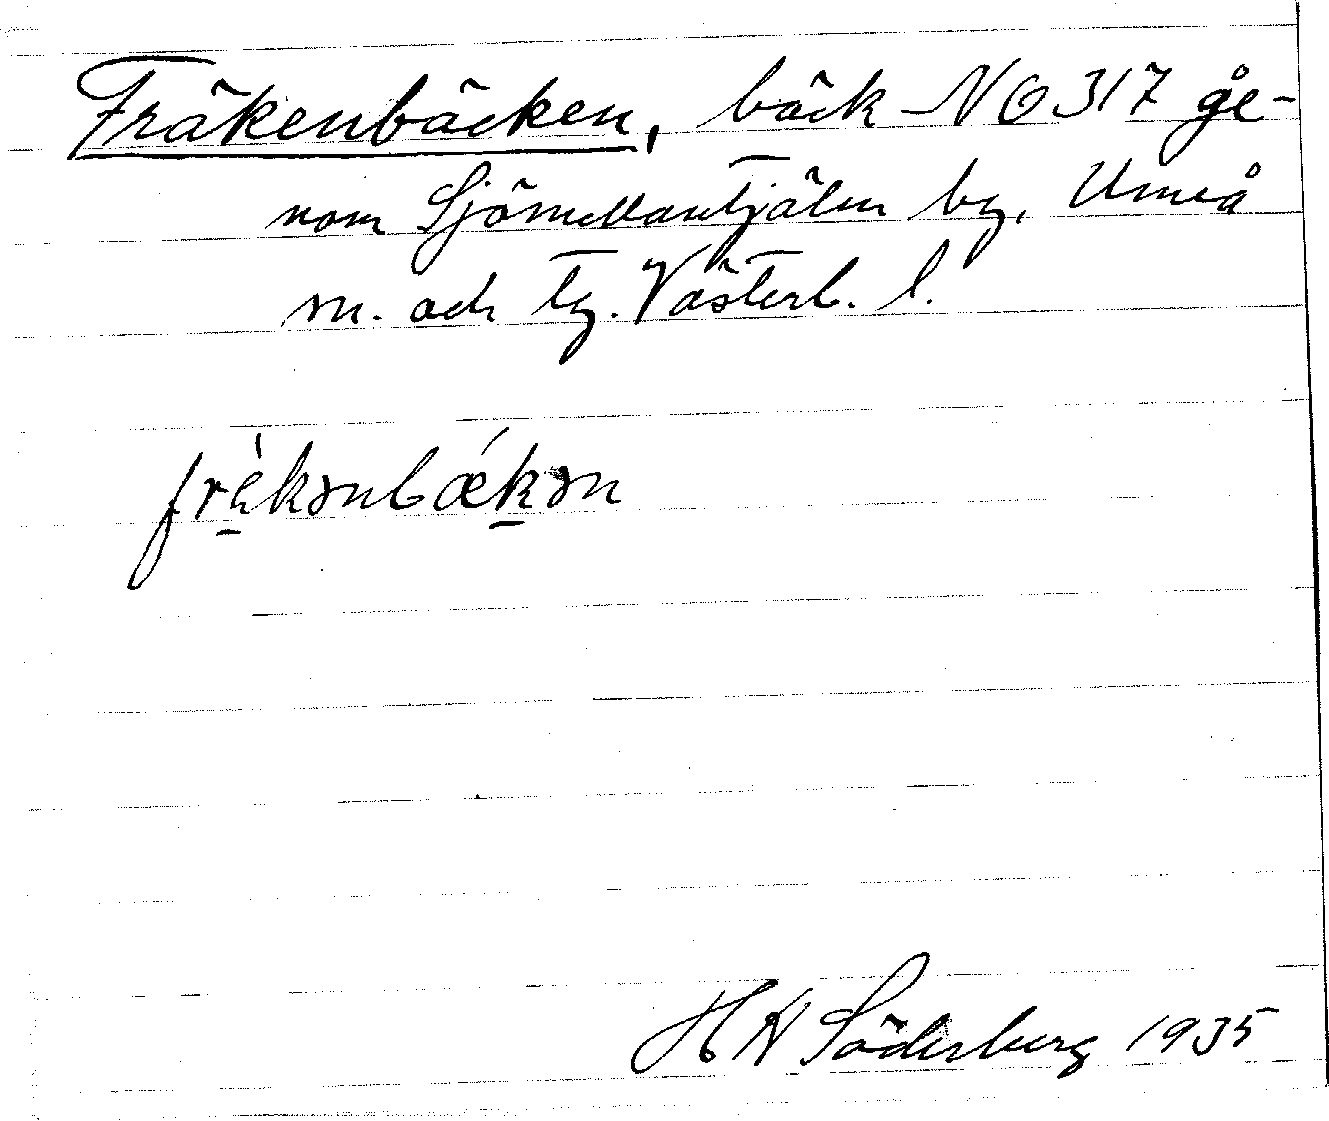 Fräkenbäcken, bäck NO 317 ge-
nom Sjömellantjälen by, Umeå
sn. och tg. Västerb. l.
frè̱kənbǽḵən
H N Söderberg 1935